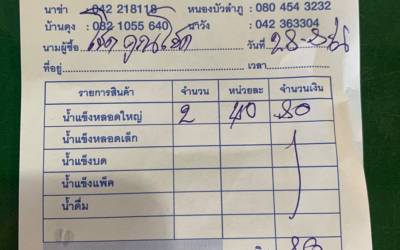 นาข่า : 042 218118 หนองบัวลำภู : 080 454 3232
บ้านดุง : 082 1055 640 นาวัง : 042 363304
นามผู้ซื้อ วันที่ 28
ที่อยู่ เวลา
รายการสินค้า จำนวน หน่วยละ จำนวนเงิน
น้ำแข็งหลอดใหญ่ 2 40 80
น้ำแข็งหลอดเล็ก
น้ำแข็งบด
น้ำแข็งแพ็ค
น้ำดื่ม
80